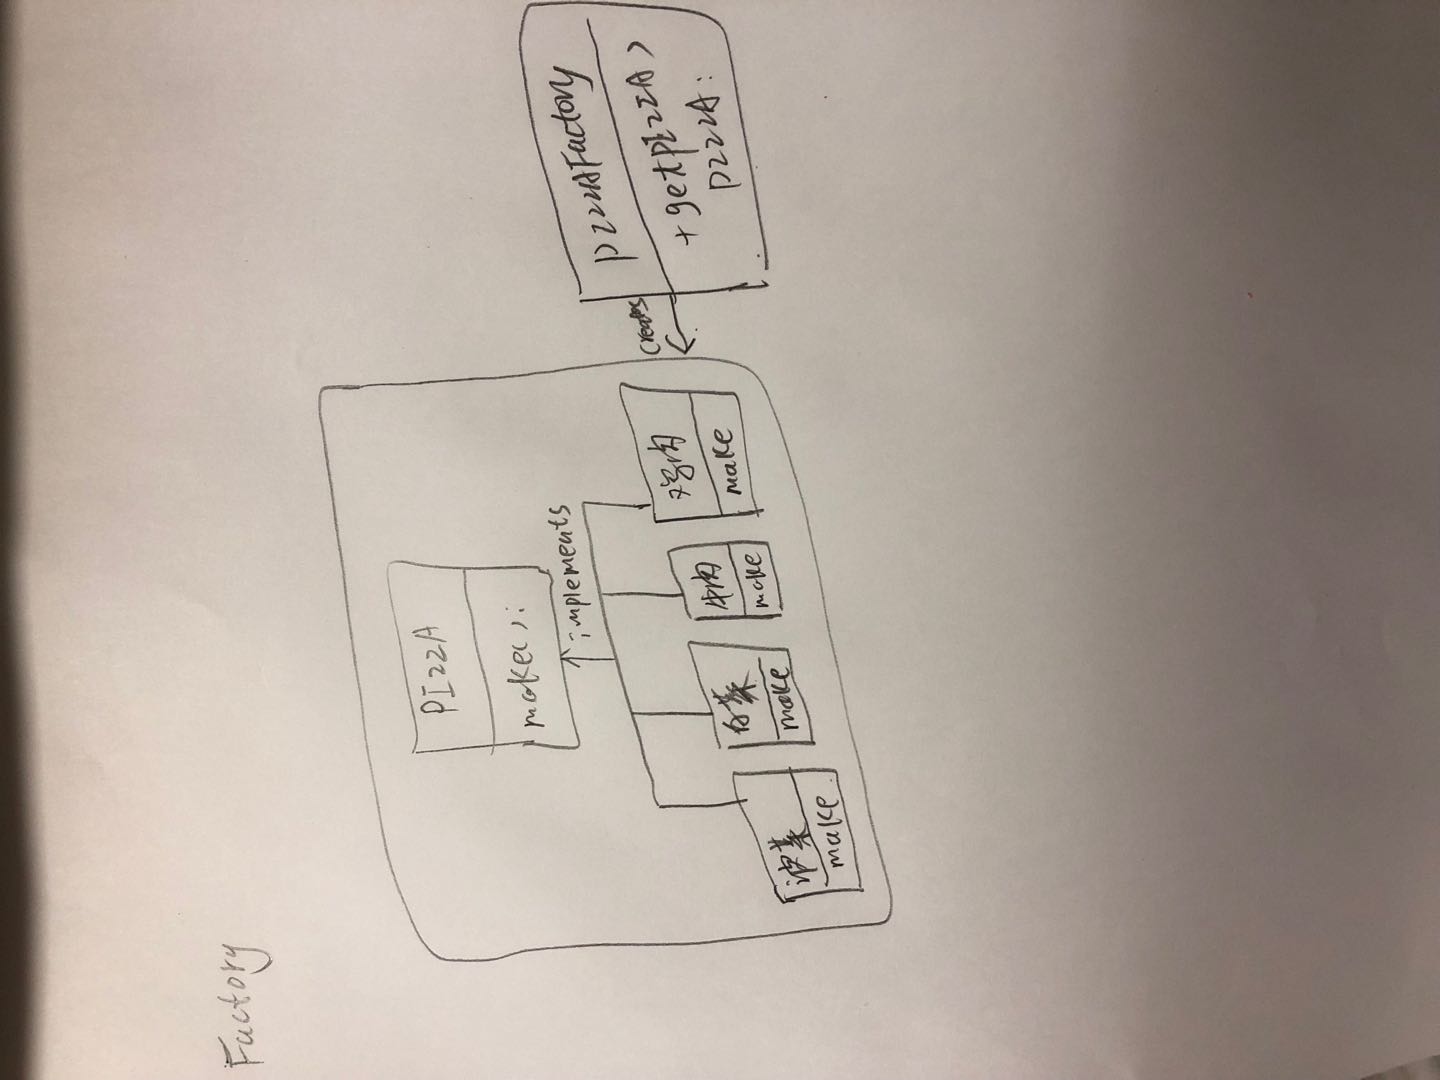 Factory
PIzzA
make();
implements
菠菜
make
白菜
make
牛肉
make
鸡肉
make
creates
PIzzAFactory
+getPIzzA()
PIzzA: